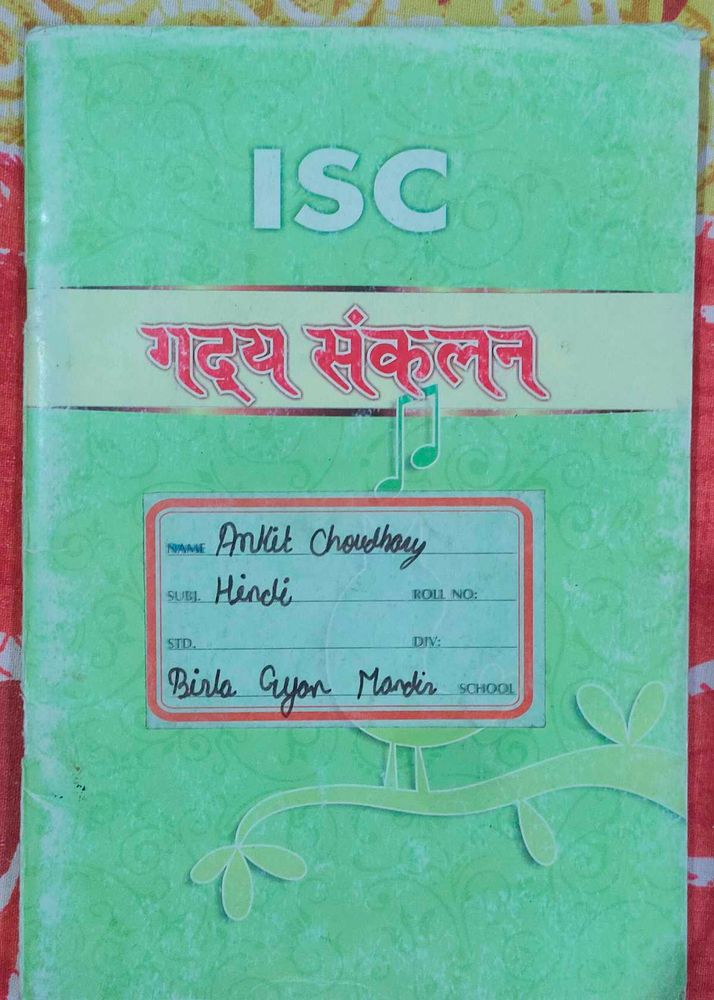 ISC
गद्य संकलन
NAME Ankit Choudhary
SUBJ. Hindi ROLL NO:
STD. DIV:
Birla Gyan Mandir SCHOOL